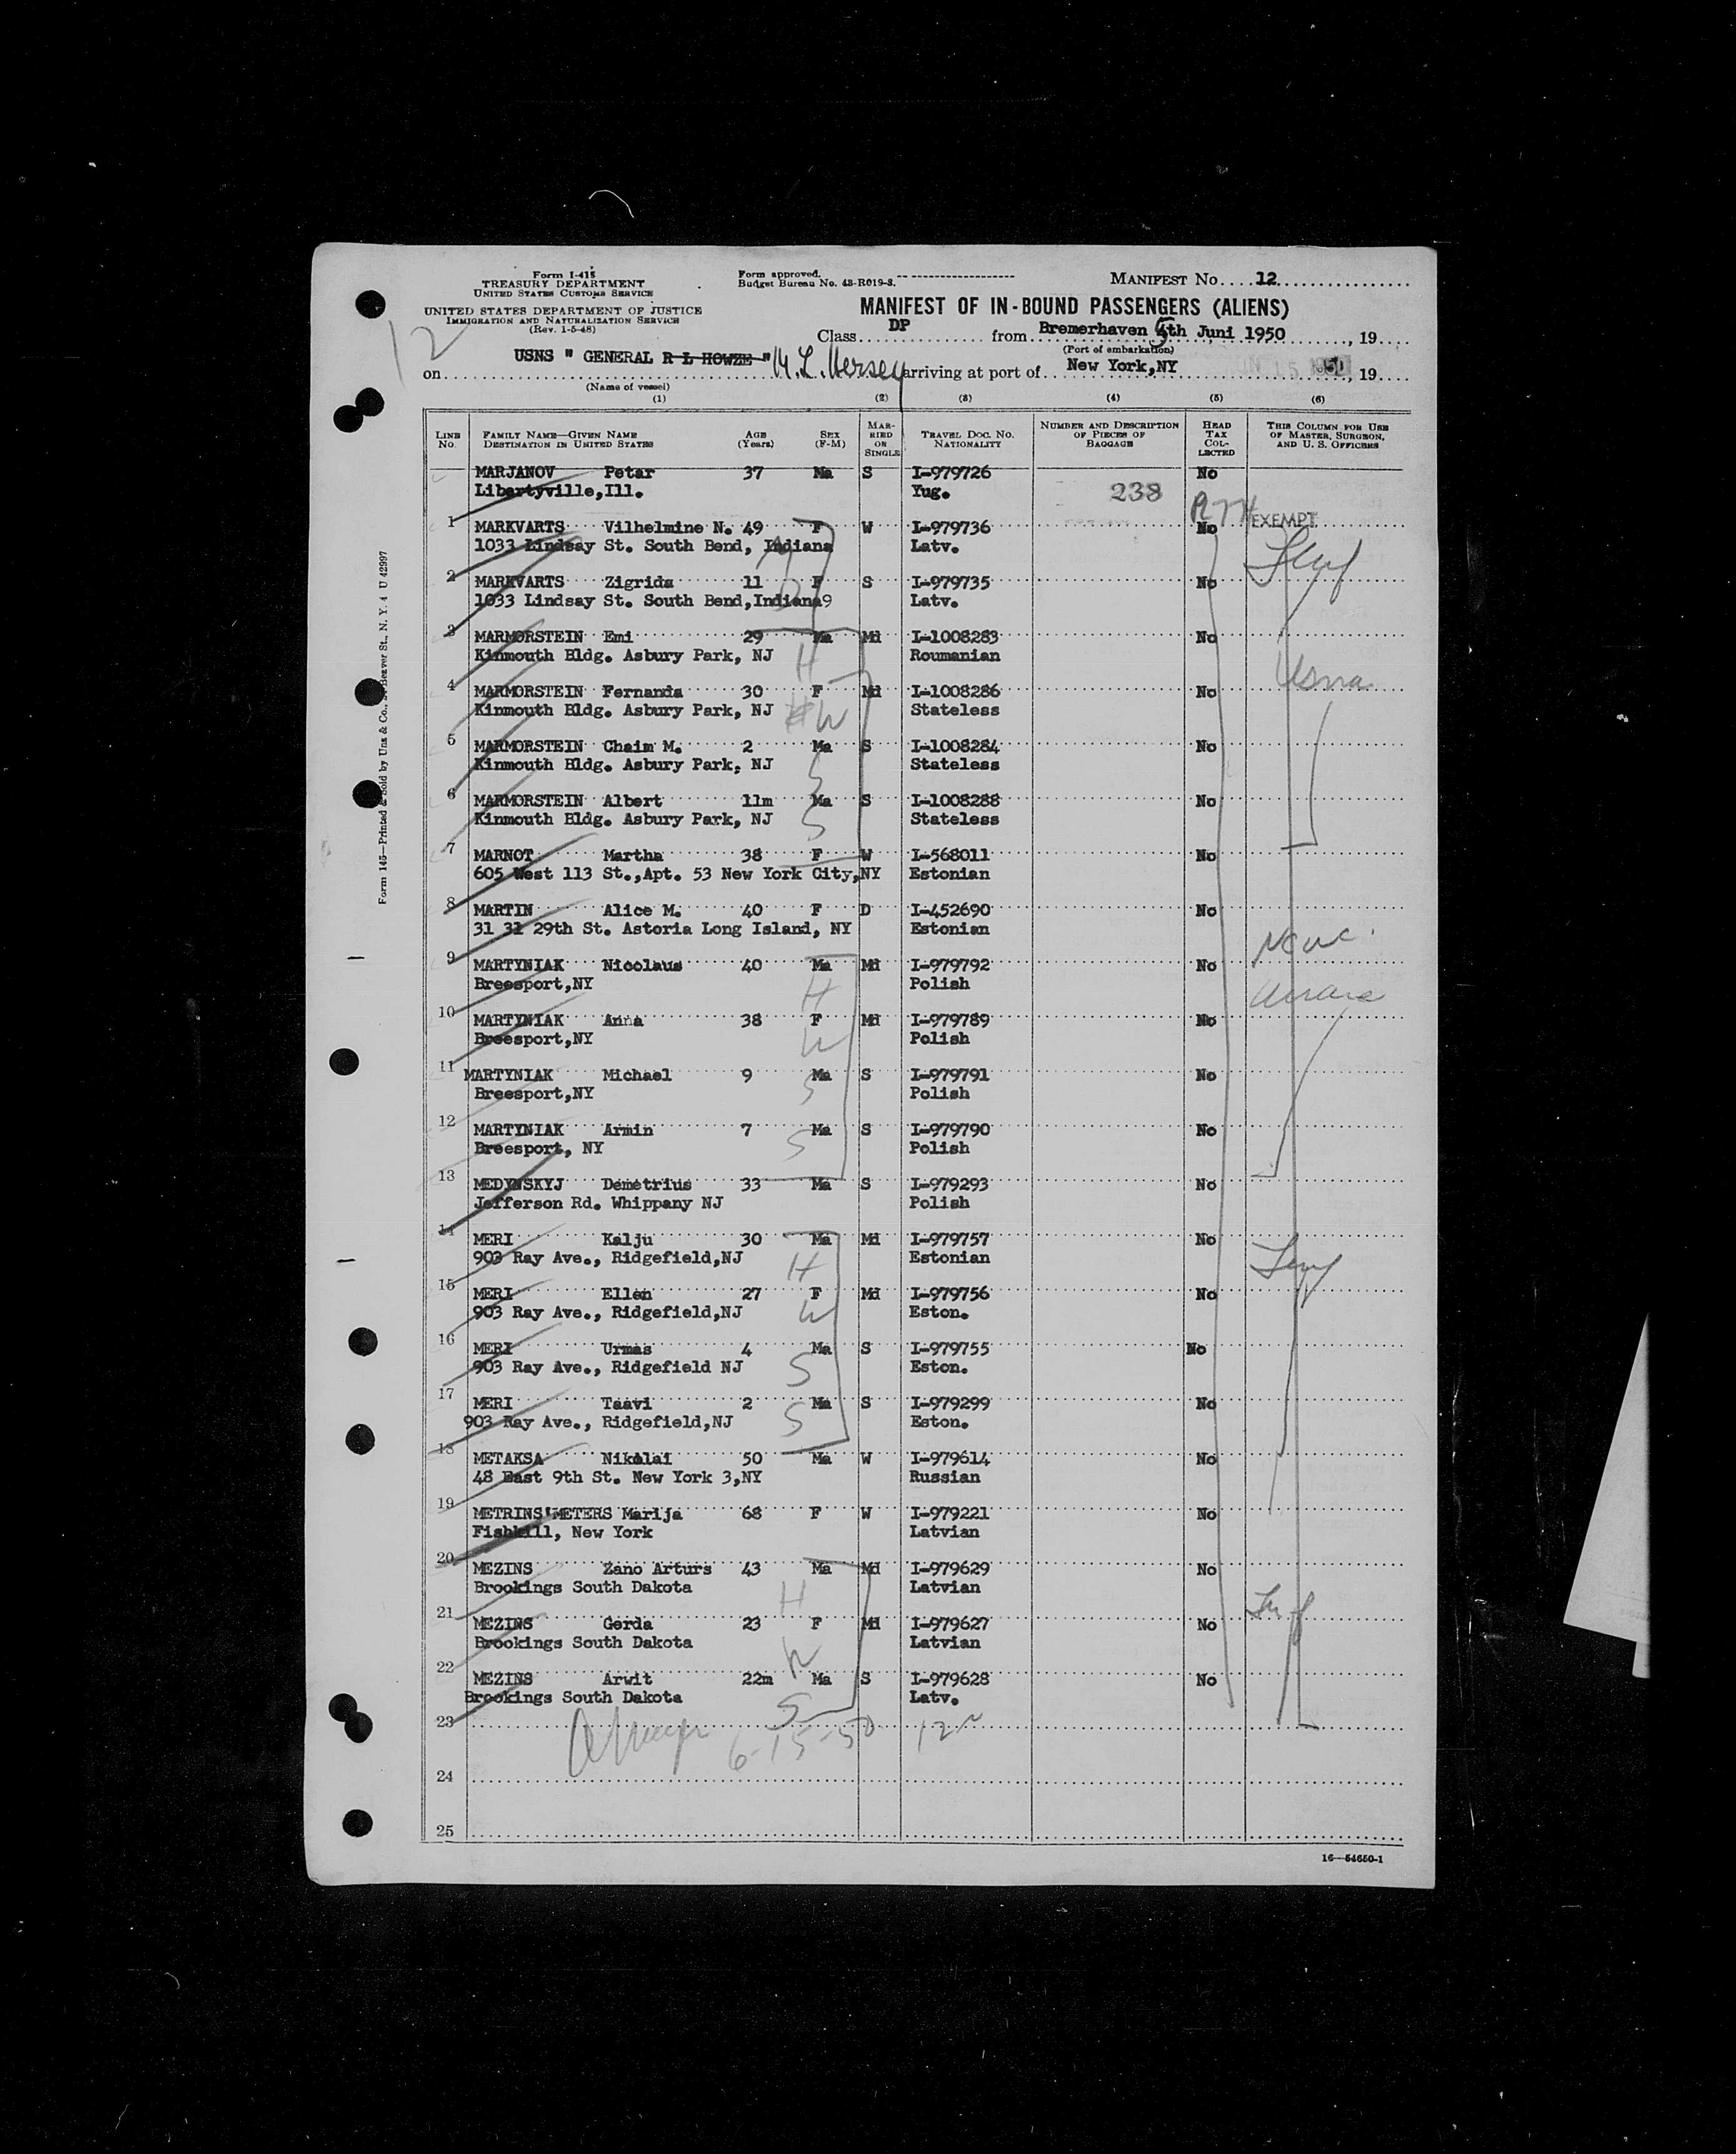 Form I-415
TREASURY DEPARTMENT
UNITED STATES CUSTOMS SERVICE
UNITED STATES DEPARTMENT OF JUSTICE
IMMIGRATION AND NATURALIZATION SERVICE
(Rev. 1-5-48)
Form approved.
Budget Bureau No. 43-R019-3.
MANIFEST NO. 12
MANIFEST OF IN-BOUND PASSENGERS (ALIENS)
Class DP from Bremerhaven 5th Juni 1950, 19
(Port of embarkation)
12
on USNS " GENERAL R L HOWZE " M. L. Hersey arriving at port of New York,NY JUN 15 1950, 19
(Name of vessel)
(1) (2) (3) (4) (5) (6)
LINE NO. FAMILY NAME—GIVEN NAME DESTINATION IN UNITED STATES AGE (Years) SEX (F-M) MARRIED OR SINGLE TRAVEL DOC. NO. NATIONALITY NUMBER AND DESCRIPTION OF PIECES OF BAGGAGE HEAD TAX COLLECTED THIS COLUMN FOR USE OF MASTER, SURGEON, AND U. S. OFFICERS
MARJANOV Petar 37 Ma S I-979726 No
Libertyville,Ill. Yug. 238
1 MARKVARTS Vilhelmine N. 49 F W I-979736 No EXEMPT
1033 Lindsay St. South Bend, Indiana Latv.
2 MARKVARTS Zigrida 11 F S I-979735 No
1033 Lindsay St. South Bend,Indiana9 Latv.
3 MARMORSTEIN Emi 29 Ma Md I-1008283 No
Kinmouth Bldg. Asbury Park, NJ H Roumanian
4 MARMORSTEIN Fernanda 30 F Md I-1008286 No
Kinmouth Bldg. Asbury Park, NJ W Stateless
5 MARMORSTEIN Chaim M. 2 Ma S I-1008284 No
Kinmouth Bldg. Asbury Park, NJ S Stateless
6 MARMORSTEIN Albert 11m Ma S I-1008288 No
Kinmouth Bldg. Asbury Park, NJ S Stateless
7 MARNOT Martha 38 F W I-568011 No
605 West 113 St.,Apt. 53 New York City,NY Estonian
8 MARTIN Alice M. 40 F D I-452690 No
31 31 29th St. Astoria Long Island, NY Estonian
NCWC
9 MARTYNIAK Nicolaus 40 Ma Md I-979792 No
Breesport,NY H Polish
10 MARTYNIAK Anna 38 F Md I-979789 No
Breesport,NY W Polish
11 MARTYNIAK Michael 9 Ma S I-979791 No
Breesport,NY S Polish
12 MARTYNIAK Armin 7 Ma S I-979790 No
Breesport, NY S Polish
13 MEDYNSKYJ Demetrius 33 Ma S I-979293 No
Jefferson Rd. Whippany NJ Polish
14 MERI Kalju 30 Ma Md I-979757 No
903 Ray Ave., Ridgefield,NJ H Estonian
15 MERI Ellen 27 F Md I-979756 No
903 Ray Ave., Ridgefield,NJ W Eston.
16 MERI Urmas 4 Ma S I-979755 No
903 Ray Ave., Ridgefield NJ S Eston.
17 MERI Taavi 2 Ma S I-979299 No
903 Ray Ave., Ridgefield,NJ S Eston.
18 METAKSA Nikolai 50 Ma W I-979614 No
48 East 9th St. New York 3,NY Russian
19 METRINS'METERS Marija 68 F W I-979221 No
Fishkill, New York Latvian
20 MEZINS Zano Arturs 43 Ma Md I-979629 No
Brookings South Dakota H Latvian
21 MEZINS Gerda 23 F Md I-979627 No
Brookings South Dakota W Latvian
22 MEZINS Arwit 22m Ma S I-979628 No
Brookings South Dakota S Latv.
23 6-15-50
24
25
16—54650-1